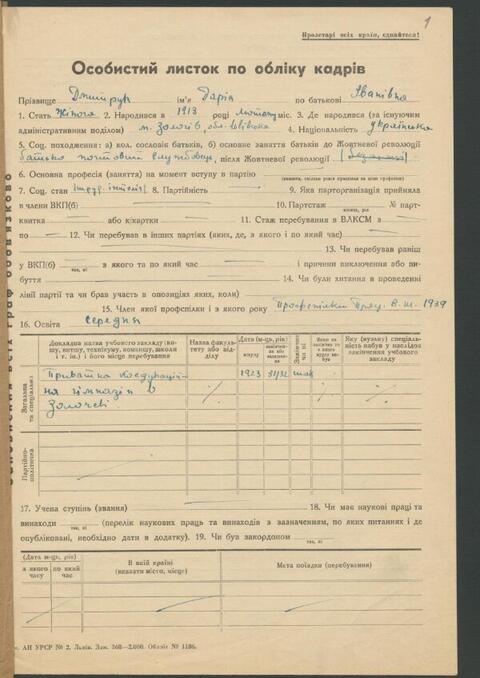 1
Пролетарі всіх країн, єднайтеся!
Особистий листок по обліку кадрів
Прізвище Дмитрук ім'я Дарія по батькові Іванівна
1. Стать Жіноча 2. Народився в 1913 році міс. 3. Де народився (за існуючим
адміністративним поділом) м. Золочів, обл. Львівська 4. Національність українська
5. Соц. походження: а) кол. звання, стан б) основне заняття батьків до Жовтневої революції
батько поштовий службовець, після Жовтневої революції
6. Основна професія (заняття) на момент вступу в партію
7. Соц. стан 8. Партійність 9. Яка парторганізація прийняла
в члени ВКП(б) 10. Партстаж № парт-
квитка або к/картки 11. Стаж перебування в ВЛКСМ з
по 12. Чи перебував в інших партіях (яких, де, з якого і по який час)
13. Чи перебував раніш
у ВКП(б) з якого та по який час і причини виключення або ви-
буття 14. Чи були хитання в проведенні
лінії партії та чи брав участь в опозиціях яких, коли)
15. Член якої профспілки і з якого року Профспілки Прац. В. Ш. 1939
16. Освіта середня
Загальна та спеціальна
Докладна назва учбового закладу (ву-
зу, втузу, технікуму, комвузу, школи
і т. ін.) і його місце перебування
Назва факуль-
тету або від-
ділу
Дата (м-ць, рік)
вступу
Яку (вузьку) спеціаль-
ність набув у наслідок
закінчення учбового
закладу
Приватна коедукаційна гімназія в Золочеві
1923 31/32 так
Партійно-
політична
17. Учена ступінь (звання) 18. Чи має наукові праці та
винаходи (перелік наукових праць та винаходів з зазначенням, по яких питаннях і де
так, ні
опубліковані, необхідно дати в додатку). 19. Чи був закордоном
так, ні
(Дата м-ць, рік)
з якого часу
по який час
В якій країні
(вказати місто, місце)
Мета поїздки (перебування)
АН УРСР № 2. Львів. Зам. 360—2.000. Обліт № 1186.